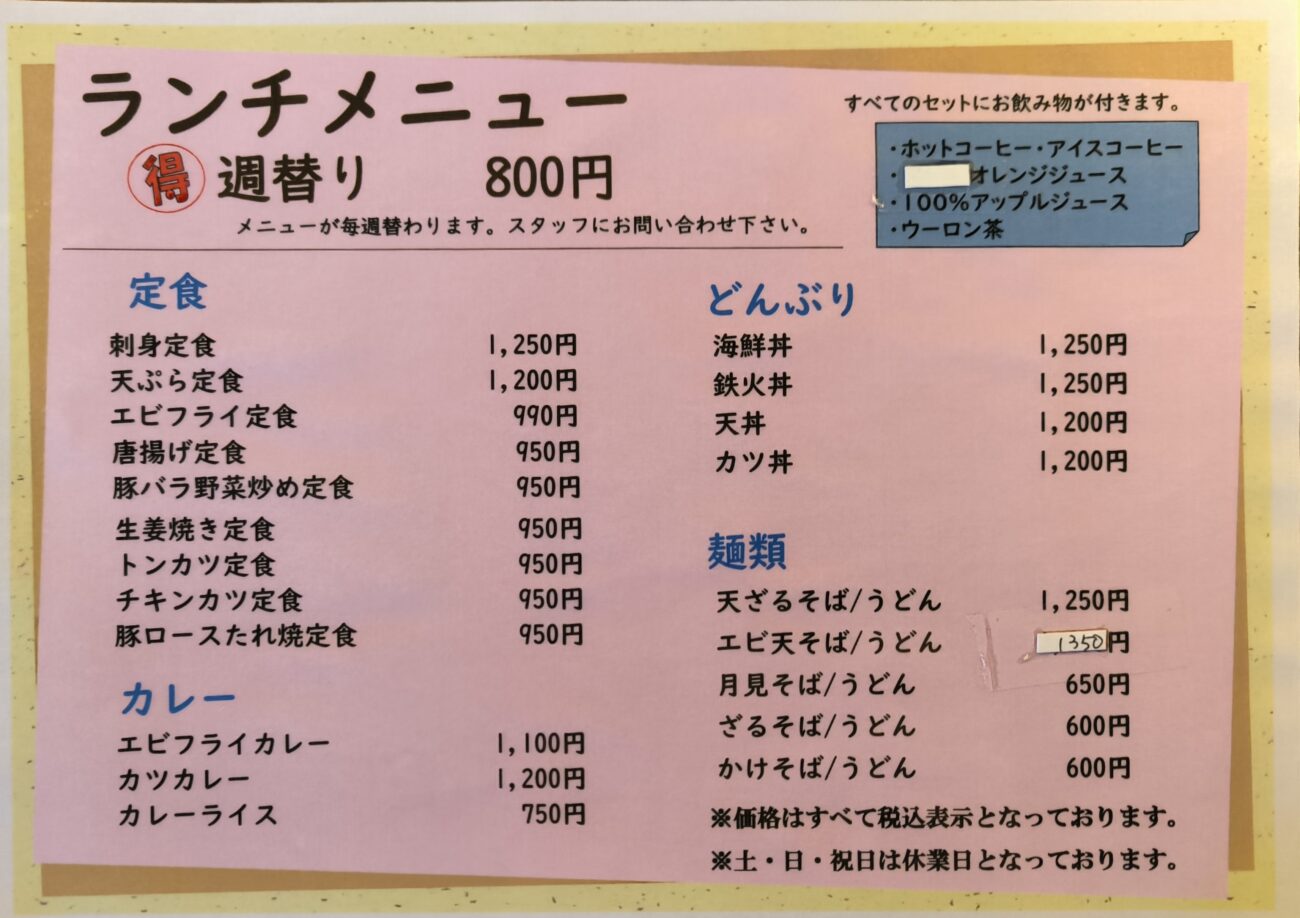 ランチメニュー
得 週替り 800円
メニューが毎週替わります。スタッフにお問い合わせ下さい。
すべてのセットにお飲み物が付きます。
・ホットコーヒー・アイスコーヒー
・オレンジジュース
・100%アップルジュース
・ウーロン茶
定食
刺身定食 1,250円
天ぷら定食 1,200円
エビフライ定食 990円
唐揚げ定食 950円
豚バラ野菜炒め定食 950円
生姜焼き定食 950円
トンカツ定食 950円
チキンカツ定食 950円
豚ロースたれ焼定食 950円
カレー
エビフライカレー 1,100円
カツカレー 1,200円
カレーライス 750円
どんぶり
海鮮丼 1,250円
鉄火丼 1,250円
天丼 1,200円
カツ丼 1,200円
麺類
天ざるそば/うどん 1,250円
エビ天そば/うどん 1350円
月見そば/うどん 650円
ざるそば/うどん 600円
かけそば/うどん 600円
※価格はすべて税込表示となっております。
※土・日・祝日は休業日となっております。